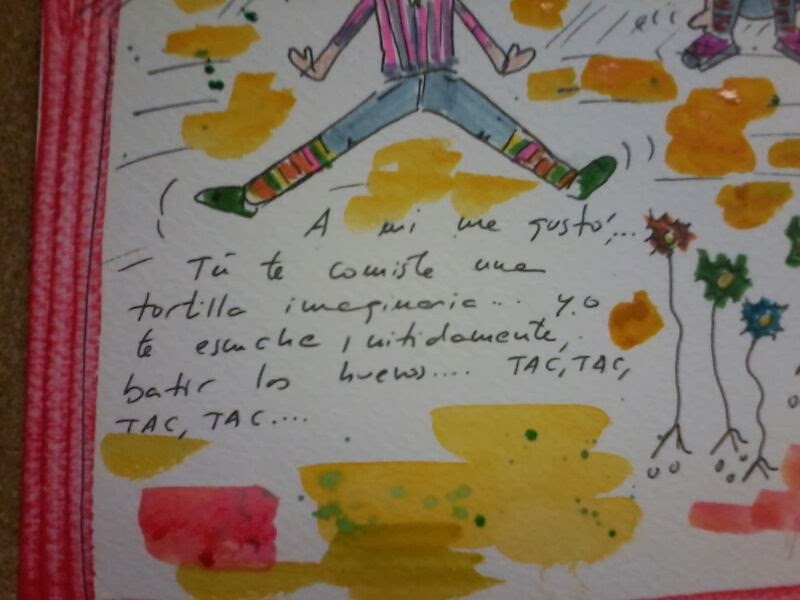 A mi me gustó;...
Tú te comiste una
tortilla imaginaria... yo
te escuche, nitidamente,
batir los huevos.... TAC, TAC,
TAC, TAC....